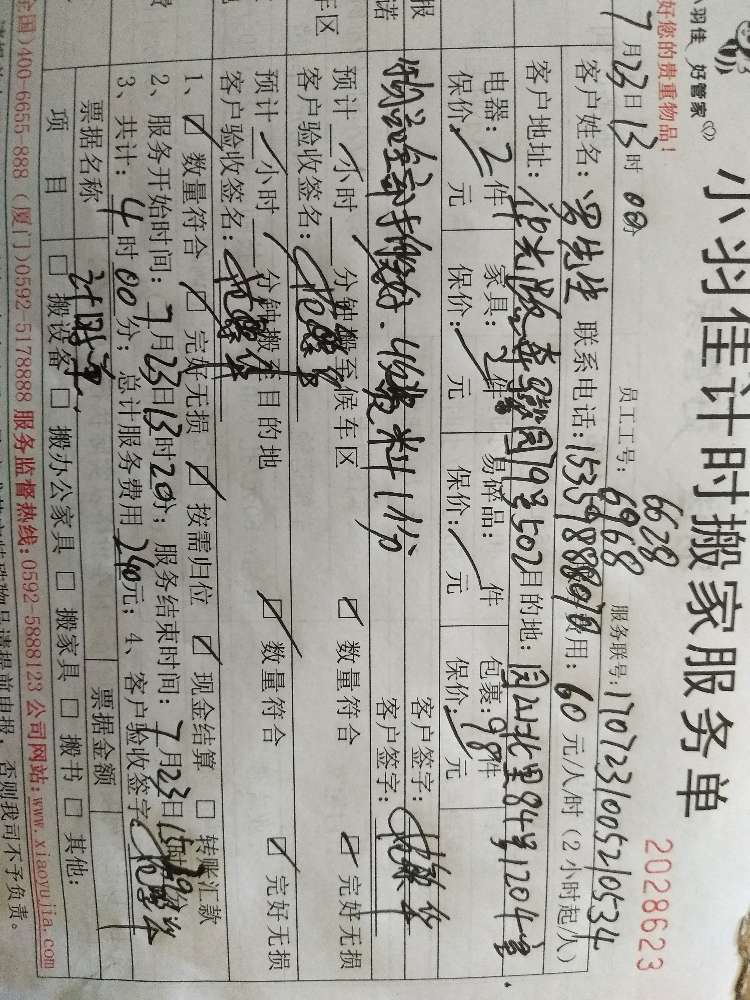 小羽佳 好管家
小羽佳计时搬家服务单
2028623
好您的贵重物品!
7月23日13时00分 员工工号: 6628 6968 服务联号: 1707231005210534
客户姓名: 罗先生 联系电话: 费用: 60元/人/时(2小时起/人)
客户地址: 79号502 目的地: 84号1204室
电器: 2件 家具: 2件 易碎品: 件 包裹: 98件
保价: 元 保价: 元 保价: 元 保价: 元
客户签字:
客户签字:
预计 小时 分钟搬至候车区 ☑ 数量符合 ☑ 完好无损
客户验收签名:
预计 小时 分钟搬至目的地 ☑ 数量符合 ☑ 完好无损
客户验收签名:
1、☑ 数量符合 ☑ 完好无损 ☑ 按需归位 ☑ 现金结算 □ 转账汇款
2、服务开始时间: 7月23日13时20分; 服务结束时间: 7月23日15
3、共计: 4时00分; 总计服务费用 240元; 4、客户验收签字:
票据名称 计时单 票据金额
项目 □ 搬设备 □ 搬办公家具 □ 搬家具 □ 搬书 □ 其他:
全国)400-6655-888 (厦门)0592-5178888 服务监督热线:0592-5888123 公司网站:www.xiaoyujia.com
物品请提前申报, 否则我司不予负责。